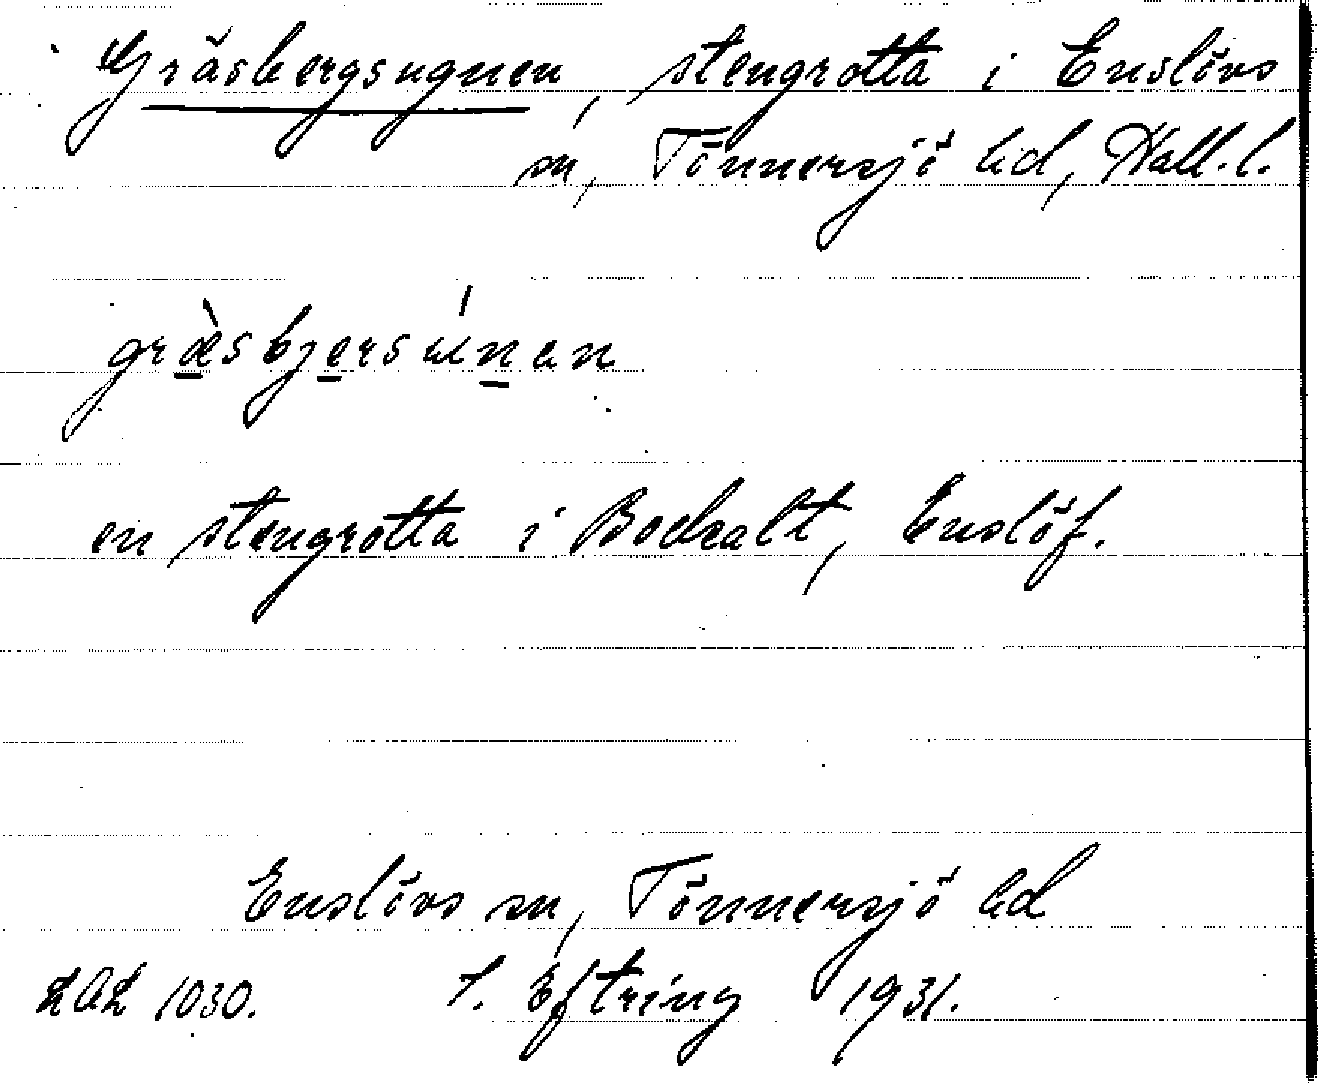 Gräsbergsugnen, stengrotta i Enslövs
sn, Tönnersjö hd, Hall. l.
græ̀sbjersúnan
en stengrotta i Bockalt, Enslöf.
Enslövs sn, Tönnersjö hd
LAL 1030. S. Eftring 1931.